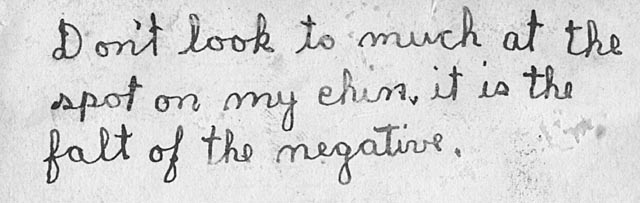 Don't look to much at the
spot on my chin, it is the
falt of the negative.